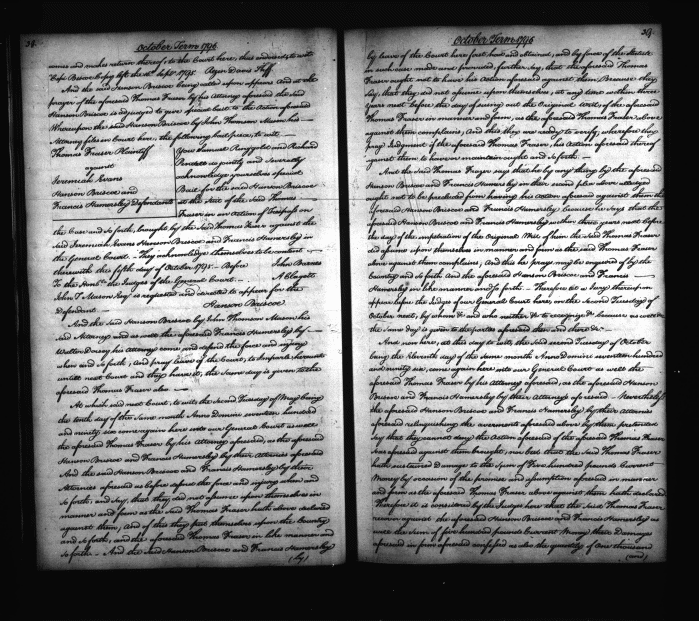 38.
October Term 1796
comes and makes return thereof to the Court here, thus endorsed, to wit
"Cepi Briscoe Copy left the 16th Sept. 1795.
And the said Hanson Briscoe being called upon appears And at the
prayer of the aforesaid Thomas Fraser by his Attorney aforesaid the said
Hanson Briscoe is adjudged to give special bail to the Action aforesaid
Whereupon the said Hanson Briscoe by John Thomson Mason his
Attorney files in Court here, the following bail piece, to wit
Thomas Fraser Plaintiff
against
Jeremiah Evans
Hanson Briscoe and
Francis Hamersley Defendants
You Samuel Ringgold and Richard
jointly and Severally
acknowledge yourselves special
Bail for the said Hanson Briscoe
at the Suit of the Said Thomas
Fraser in an Action of Trespass on
the Case and So forth, brought by the Said Thomas Fraser against the
Said Jeremiah Evans Hanson Briscoe and Francis Hamersley in
the General Court. They acknowledge themselves to be content
therewith this fifth day of October 1795. Before John Barnes
To the Honble the Judges of the General Court. A Clagett
John T. Mason Esqr. is requested and directed to appear for the
Defendant Hanson Briscoe
And the said Hanson Briscoe by John Thomson Mason his
said Attorney and as well the aforesaid Francis Hamersley by
Walter Dorsey his Attorney come and defend the force and injury
when and So forth, And pray leave of the Court, to Imparle hereunto
untill next Court and they have it, the Same day is given to the
aforesaid Thomas Fraser also
At which said next Court, to wit, the Second Tuesday of May being
the tenth day of the Same month Anno Domini seventeen hundred
and ninety six come again here into our General Court as well
the aforesaid Thomas Fraser by his Attorney aforesaid, as the aforesaid
Hanson Briscoe and Francis Hamersley by their Attornies aforesaid
And the said Hanson Briscoe and Francis Hamersley by their
Attornies aforesaid as before defend the force and injury when and
So forth, and Say, that they did not assume upon themselves in
manner and form as the Said Thomas Fraser hath above declared
against them, And of this they put themselves upon the Country
and So forth, and the aforesaid Thomas Fraser in like manner and
So forth. And the said Hanson Briscoe and Francis Hamersley
(by)
39.
October Term 1796
by leave of the Court here first had and obtained, and by force of the Statute
in such case made and provided, further Say, that the aforesaid Thomas
Fraser ought not to have his Action aforesaid against them Because they
Say, that they did not assume upon themselves, at any time within three
years next before the day of suing out the Original Writ, of the aforesaid
Thomas Fraser in manner and form, as the aforesaid Thomas Fraser above
against them complains, And this they are ready to verify, wherefore they
pray Judgment if the aforesaid Thomas Fraser, his Action aforesaid thereof
against them to have or maintain ought and So forth.
And the Said Thomas Fraser says that he by any thing by the aforesaid
Hanson Briscoe and Francis Hamersley in their second plea above alledged
ought not to be precluded from having his Action aforesaid against them the
aforesaid Hanson Briscoe and Francis Hamersley because he Says that the
aforesaid Hanson Briscoe and Francis Hamersley within three years next before
the day of the impetration of the Original Writ of him the Said Thomas Fraser
did assume upon themselves in manner and form as the said Thomas Fraser
above against them complains, And this he prays may be enquired of by the
Country and So forth And the aforesaid Hanson Briscoe and Francis
Hamersley in like manner and So forth. Therefore let a Jury thereupon
appear before the Judges of our General Court here, on the Second Tuesday of
October next, by whom &c and who neither &c to recognize &c because as well &c
the Same Day is given to the parties aforesaid then and there &c
And now here, at this day to wit, the said second Tuesday of October
being the Eleventh day of the Same month Anno Domini seventeen hundred
and ninety six, come again here into our General Court as well the
aforesaid Thomas Fraser by his Attorney aforesaid, as the aforesaid Hanson
Briscoe and Francis Hamersley by their Attornies aforesaid. Nevertheless
the aforesaid Hanson Briscoe and Francis Hamersley by their Attornies
aforesaid relinquishing the averments aforesaid above by them pretended
Say that they cannot deny the Action aforesaid of the aforesaid Thomas Fraser
against them brought, nor but that the Said Thomas Fraser
hath sustained Damage to the Sum of Five hundred pounds Current
Money by occasion of the promise and assumption aforesaid in manner
and form as the aforesaid Thomas Fraser above against them hath declared
Therefore it is considered by the Judges here that the Said Thomas Fraser
recover against the aforesaid Hanson Briscoe and Francis Hamersley as
well the Sum of five hundred pounds Current Money their Damages
aforesaid in form aforesaid confessed as also the quantity of One thousand
(and)